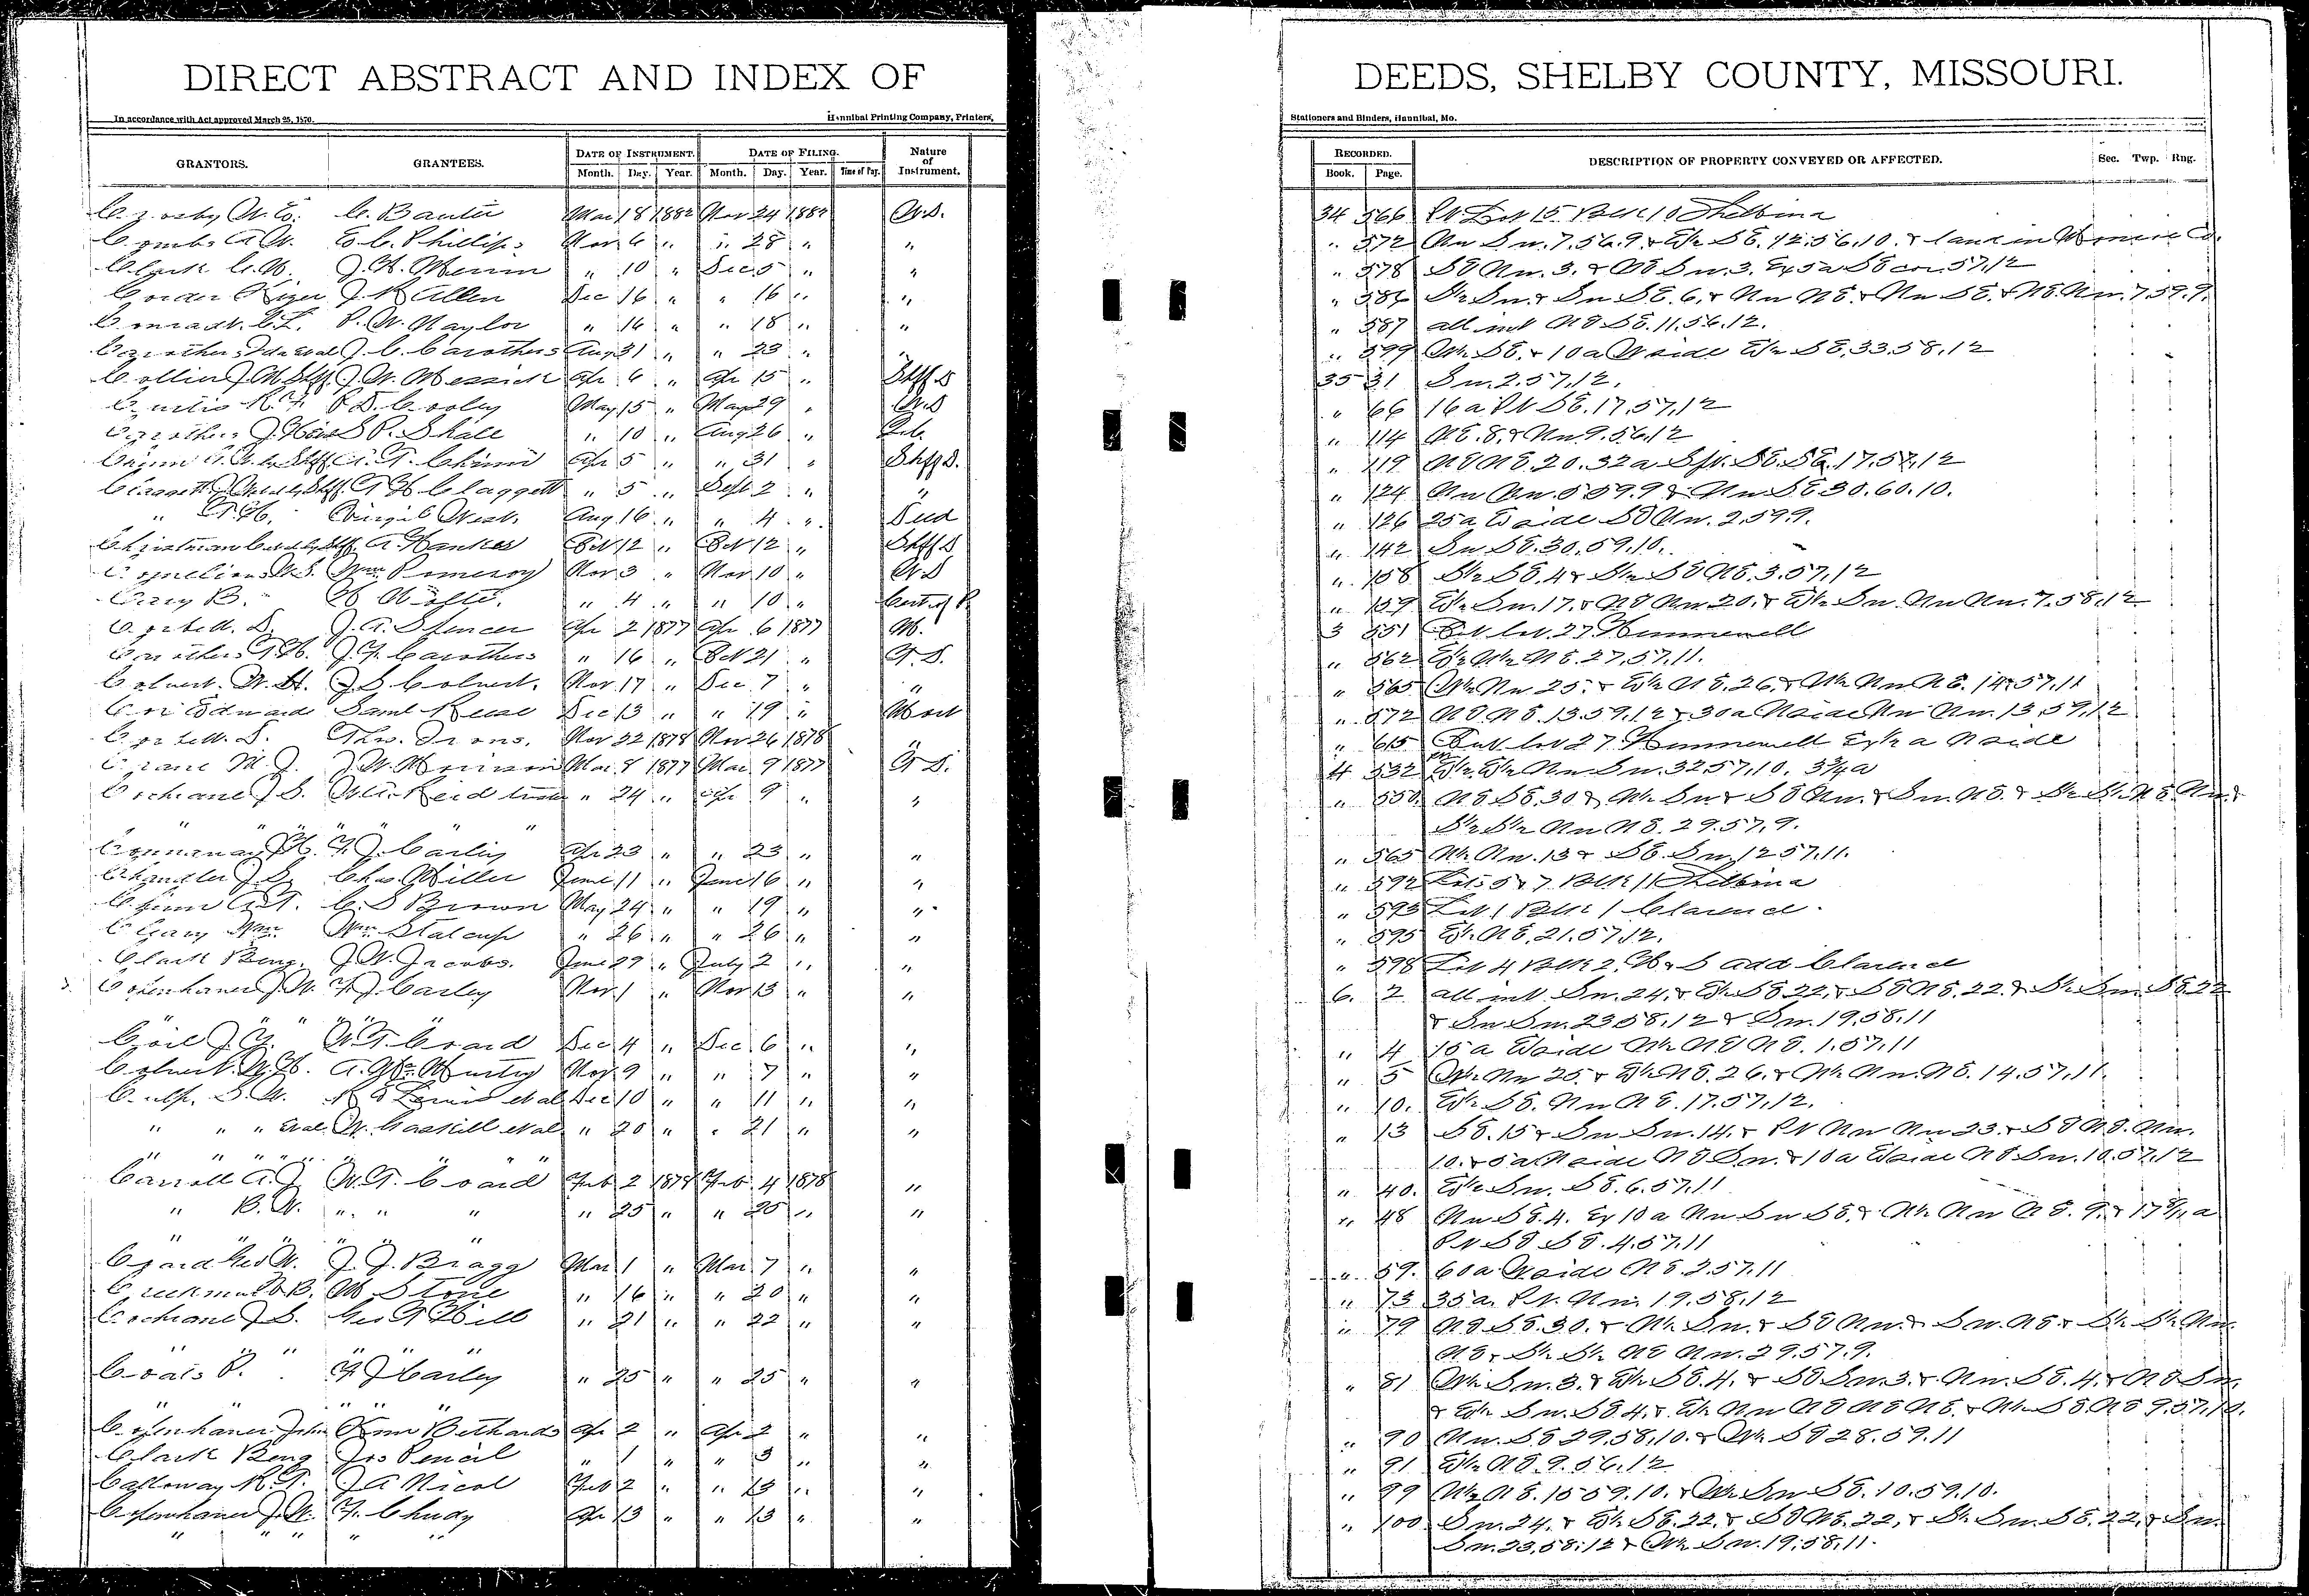 DIRECT ABSTRACT AND INDEX OF
DEEDS, SHELBY COUNTY, MISSOURI.
In accordance with Act approved March 25, 1870.
Hannibal Printing Company, Printers,
Stationers and Binders, Hannibal, Mo.
GRANTORS. GRANTEES. DATE OF INSTRUMENT. DATE OF FILING. Nature of Instrument.
Month. Day. Year. Month. Day. Year. Time of Day.
RECORDED. DESCRIPTION OF PROPERTY CONVEYED OR AFFECTED. Sec. Twp. Rng.
Book. Page.
Crosby W.E. Mar 18 1882 Nov 24 1882 W.D. 34 566 Pt Lot 15 Blk 10 Shelbina
Combs A W. E C. Phillips Nov 6 " " 28 " " " 572 Nw Sw. 7.56.9. & E½ SE. 12.56.10. & land in Monroe Co.
Clark C.W. " 10 " Dec 5 " " " 578 SE Nw. 3. & NE Sw. 3. Ex 5a SE cor. 57.12
J. K Allen Dec 16 " " 16 " " " 586
P. W. Naylor " 16 " " 18 " " " 587 all int NE SE. 11.56.12.
J. C. Carothers Aug 31 " " 23 " " " 599 W½ SE. & 10a W side E½ SE. 33.58.12
J. W. Messick Apr 6 " Apr 15 " Shff D 35 31 Sw. 2.57.12.
Curtis R.F. P D. Cooley May 15 " May 29 " W.D " 66 16 a Pt SE. 17.57.12
S P. Shale " 10 " Aug 26 " " 114 NE. 8. & Nw. 9.56.12
A. T. Chinn Apr 5 " " 31 " Shff D. " 119
T H Claggett " 5 " Sept 2 " " " 124 Nw Nw. 5 59.9 & Nw SE 30.60.10.
" T.H. Virgil West. Aug 16 " " 4 " Deed " 126 25a E side SE Nw. 2.59.9.
Oct 12 " Oct 12 " Shff D " 142 Sw SE. 30.59.10.
Cornelius W.S. Wm Pomeroy Nov 3 " Nov 10 " W.D " 158 S½ SE. 4 & S½ SE NE. 3.57.12
" 4 " " 10 " Cert of P. " 159 E½ Sw. 17. & NE Nw 20. & E½ Sw. Nw Nw. 7.58.12
Corbett. D. J. A. Spencer Apr 2 1877 Apr 6 1877 M. 3 551 Out lot 27 Hunnewell
Carothers T.H. J. F. Carothers " 16 " Oct 21 " T. D. " 562 E½ W½ NE. 27.57.11.
Colvert. W. H. J. S Colvert. Nov 17 " Dec 7 " " " 565 W½ Nw 25. & E½ NE. 26. & W½ Nw NE. 14.57.11
Cox Edward Dec 13 " " 19 " Mort " 572 NE NE. 13.59.12 & 30a N side Nw Nw. 13.59.12
Corbett. D. Thos. Irons. Nov 22 1878 Nov 26 1878 " " 615 Out lot 27 Hunnewell Ex ½ a N side
Crane M. J. Mar 8 1877 Mar 9 1877 T D. 4 532 Pt E½ E½ Nw Sw. 32 57.10. 3¾a
Cochrane J S. " 24 " Apr 9 " " " 550. NE SE. 30 & W½ Sw & SE Nw. & Sw. NE. & S½ S½ NE. Nw. &
" " " " " " S½ S½ Nw NE. 29.57.9.
F. J. Carley Apr 23 " " 23 " " " 565 W½ Nw. 13 & SE. Sw. 12 57.11.
Chandler J. S. Chas. Miller June 11 " June 16 " " " 592 Lots 5 & 7 Blk 11 Shelbina
Chinn A.T. C. S Brown May 24 " " 19 " " " 593 Lot 1 Blk 1 Clarence.
Cleary Wm Wm Stalcup " 26 " " 26 " " " 595 E½ NE. 21.57.12.
Clark Benj. J. W. Jacobs. June 29 " July 2 " " " 598 Lot 4 Blk 2. H & S add Clarence
Copenhaver J. W. F. J. Carley Nov 1 " Nov 13 " " 6. 2 all int Sw. 24. & E½ SE 22. & SE NE. 22. & S½ Sw. SE. 22
" " " & Sw Sw. 23 58.12 & Sw. 19.58.11
Coil J. Y. W. T. Coard Dec 4 " Dec 6 " " " 4 15 a E side W½ NE NE. 1.57.11
Colvert. W. H. A. Mc Murtry Nov 9 " " 7 " " " 5 W½ Nw 25. & E½ NE. 26. & W½ Nw. NE. 14.57.11.
Culp. S. W. Dec 10 " " 11 " " " 10. E½ SE. Nw NE. 17.57.12.
" " " et al. W. Gaskill et al " 20 " " 21 " " " 13 SE. 15 & Sw Sw. 14. & Pt Nw Nw 23. & SE NE. Nw.
" " " " " " " 10. & 5a N side NE Sw. & 10a E side NE Sw. 10.57.12
Carroll A. J. W. T. Coard Feb 2 1878 Feb 4 1878 " " 40. E½ Sw. SE. 6.57.11
" B. W. " " " " 25 " " 25 " " " 48 Nw SE. 4. Ex 10a Nw Sw SE. & W½ Nw NE. 9. &
" " " " " Pt SE SE. 4.57.11
Coard Geo W. J. J. Bragg Mar 1 " Mar 7 " " " 59. 60a W side NE. 2.57.11
M Stone " 16 " " 20 " " " 73 35 a. Pt. Nw. 19.58.12
Cochrane J S. Geo T Hill " 21 " " 22 " " " 79 NE SE. 30. & W½ Sw. & SE Nw. & Sw. NE & S½ S½ Nw.
" " " " " " NE & S½ S½ NE Nw. 29.57.9.
Coats P. F J Carley " 25 " " 25 " " " 81 W½ Sw. 3. & E½ SE. 4. & SE Sw. 3. & Nw. SE. 4. & NE Sw.
" " " " " & E½ Sw. SE 4. & E½ Nw NE NE NE. & W½ SE. NE 9.57.10.
Copenhaver John Bethards Apr 2 " Apr 2 " " " 90 Nw. SE 29.58.10. & W½ SE 28.59.11
Clark Benj Jos Pencil " 1 " " 3 " " " 91 E½ NE. 9.56.12
Calloway R. T. J A Nicol Feb 2 " " 13 " " " 99 W½ NE. 15 59.10. & W½ Sw SE. 10.59.10.
Copenhaver J. W. F. Chudy Apr 13 " " 13 " " " 100 Sw. 24. & E½ SE. 22. & SE NE. 22. & S½ Sw. SE. 22. & Sw.
" " " " " Sw. 23.58.12 & W½ Sw. 19.58.11.